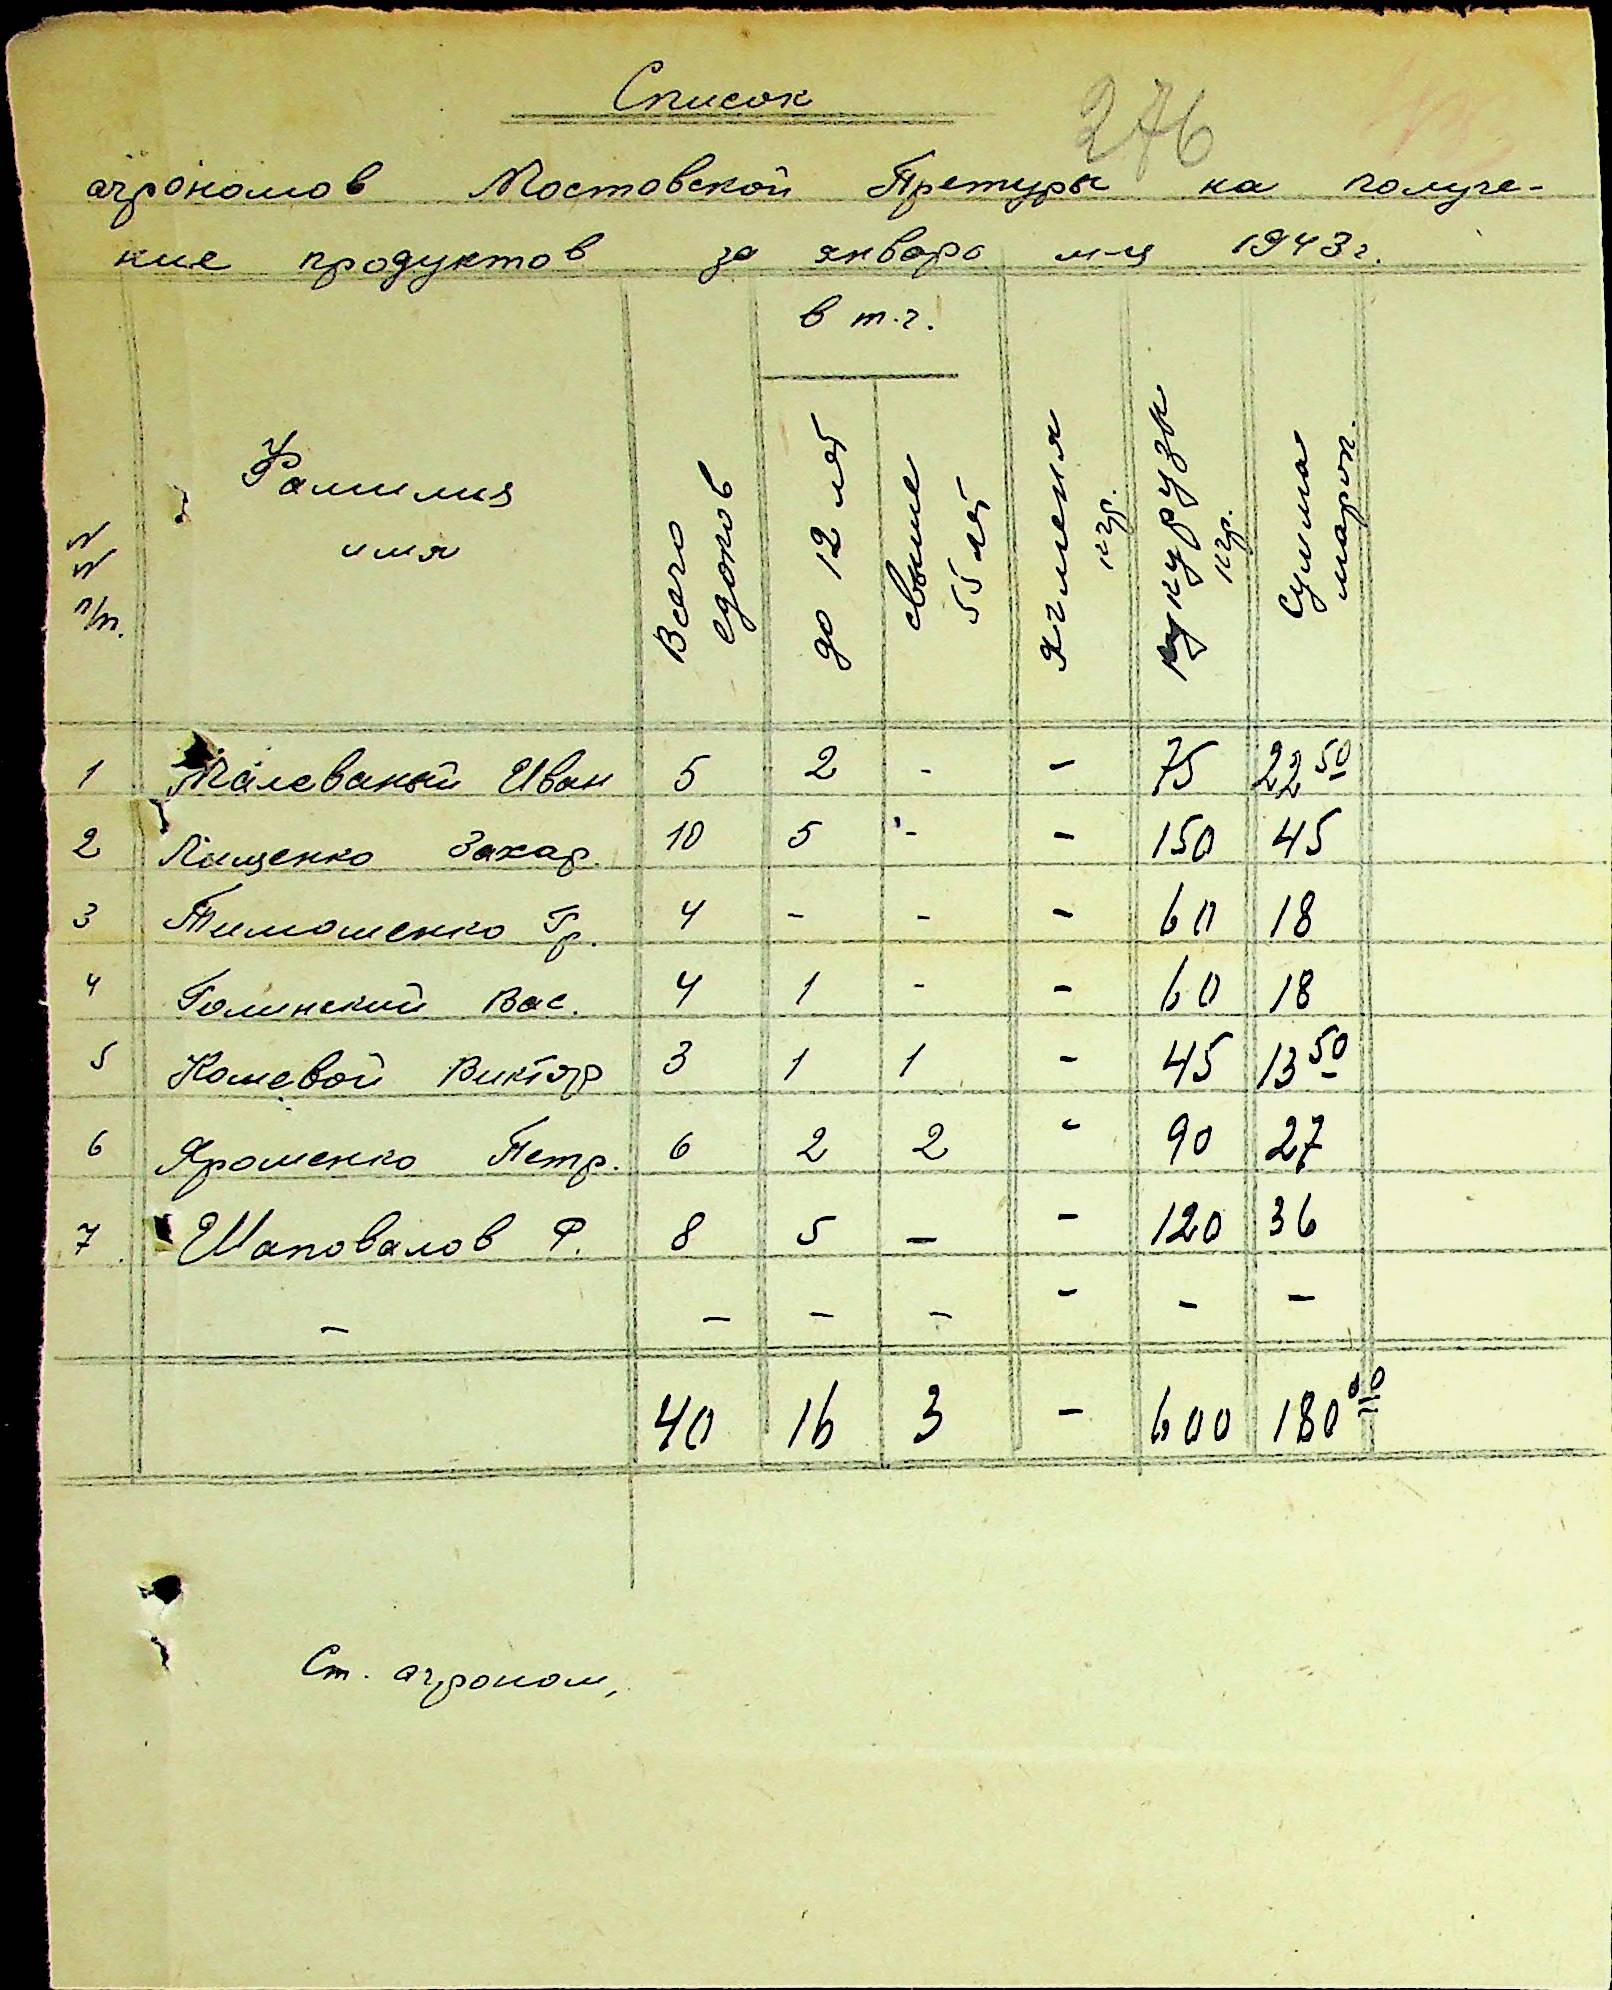 Список
276
агрономов Мостовской Претуры на получе-
ние продуктов за январь м-ц 1943г.
№№ п/п. Фамилия имя Всего едоков в т.ч. до 12 лет свыше 55 лет Ячменя кгр. кукурузы кгр. Сумма марок.
1 Малеваный Иван 5 2 - - 75 22 50
2 Лященко Захар. 10 5 - - 150 45
3 Тимошенко Гр. 4 - - - 60 18
4 Голинский Вас. 4 1 - - 60 18
5 Кошевой Виктор 3 1 1 - 45 13 50
6 Ярошенко Петр. 6 2 2 - 90 27
7 Шаповалов Ф. 8 5 - - 120 36
- - - - - - -
40 16 3 - 600 180 00
Ст. агроном,